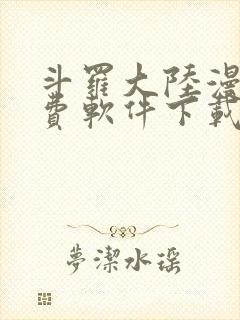 斗羅大陸漫
費軟件下載
夢潔水瑶